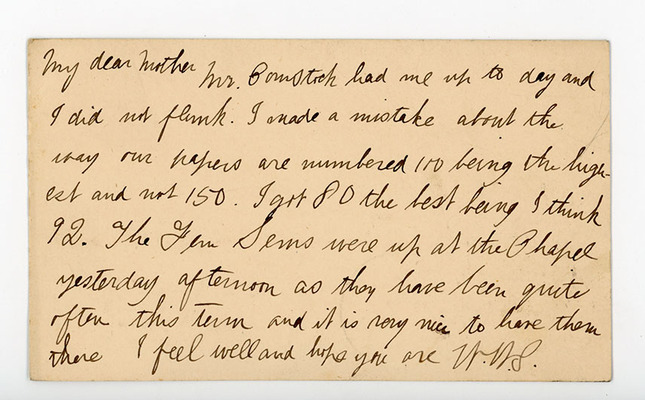 My dear Mother Mr. Comstock had me up to day and
I did not flunk. I made a mistake about the
way our papers are numbered 100 being the high-
est and not 150. I got 80 the best being I think
92. The Fem Sems were up at the Chapel
yesterday afternoon as they have been quite
often this term and it is very nice to have them
there I feel well and hope you are W.W.S.